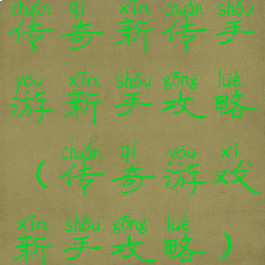 chuán qí xīn chuán shǒu
传奇新传手
yóu xīn shǒu gōng lüè
游新手攻略
chuán qí yóu xì
（传奇游戏
xīn shǒu gōng lüè
新手攻略）